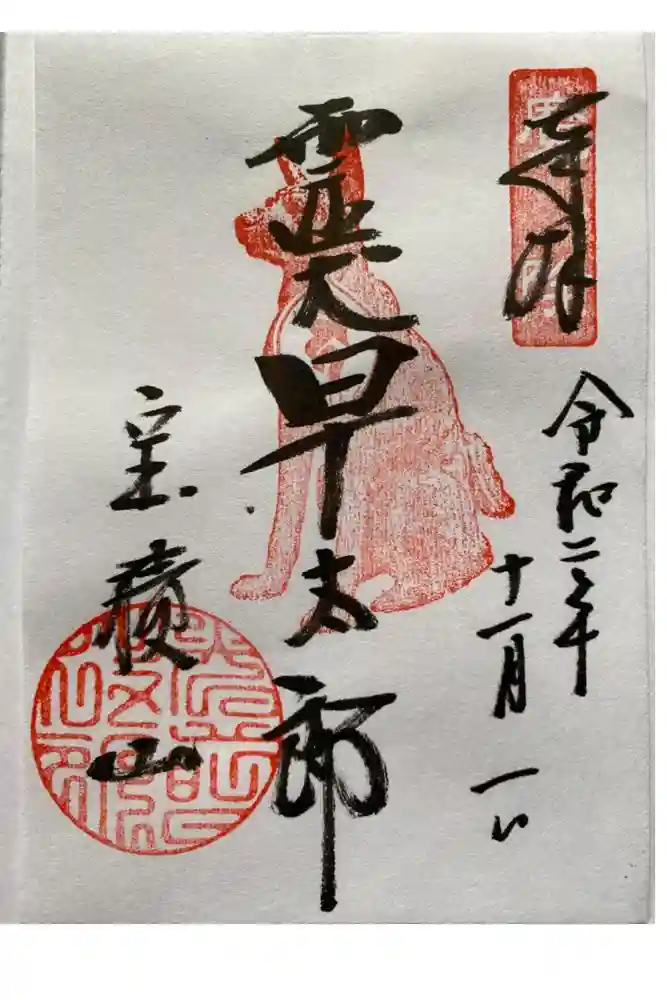 奉拝
令和二年
十一月
一日
霊犬早太郎
宝積山